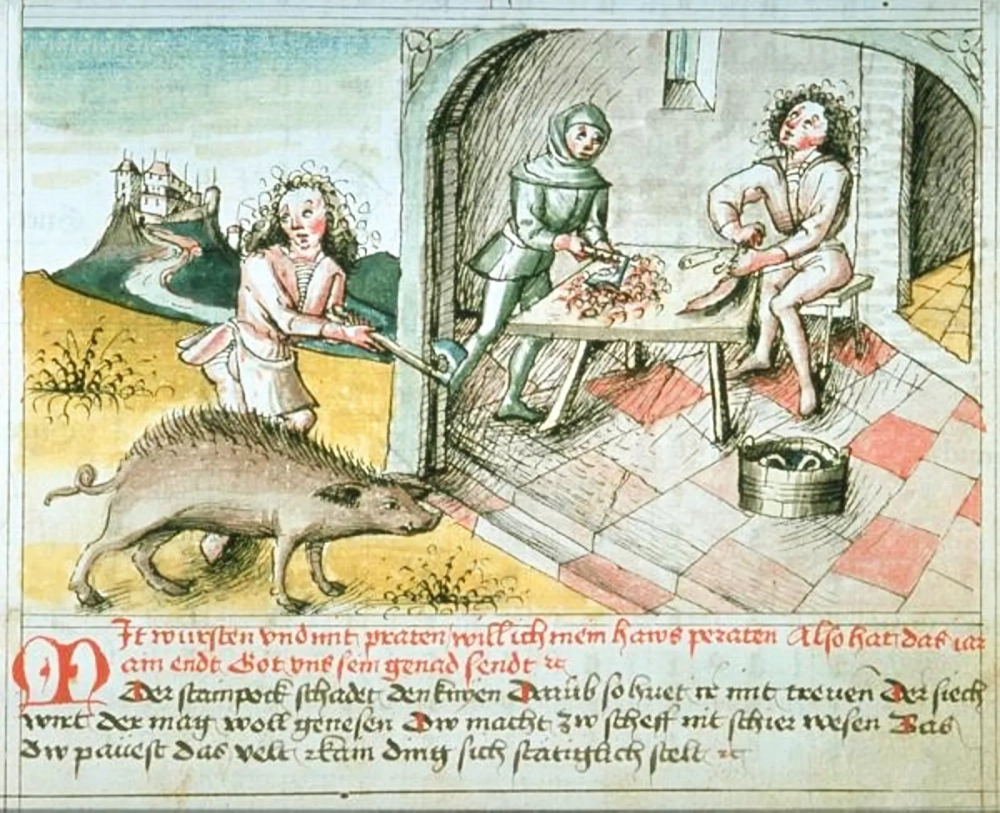 Mit wursten vnd mit praten will ich mein haws peraten Also hat das iar
ain endt Got vns sein genad sendt ꝛc
Der stainpock schadet den knyen Darub so huet ir mit treuen Der siech
wirt der mag woll genesen Dw macht zw scheff nit schier wesen Was
dw pauest das velt kain ding sich statiglich stelt ꝛc